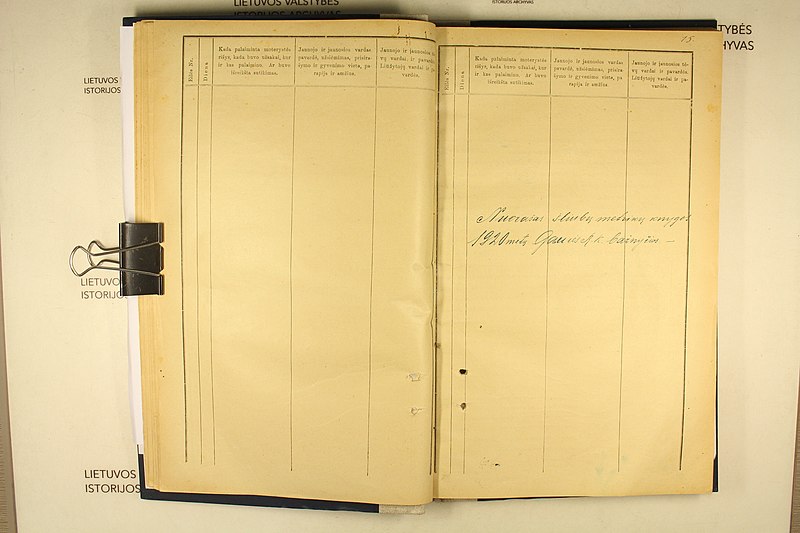 LIETUVOS VALSTYBĖS
ISTORIJOS ARCHYVAS
ISTORIJOS ARCHYVAS
TYBĖS
HYVAS
LIETUVOS
ISTORIJOS
LIETUVO
ISTORIJOS
LIETUVOS
ISTORIJOS
Eilės Nr.
Diena
Kada palaiminta moterystės
ryšys, kada buvo užsakai, kur
ir kas palaimino. Ar buvo
išreikšta sutikimas.
Jaunojo ir jaunosios vardas
pavardė, užsiėmimas, prisira-
šymo ir gyvenimo vieta, pa-
rapija ir amžius.
Jaunojo ir jaunosios tė-
vų vardai ir pavardės.
Liūdytojų vardai ir pa-
vardės.
15
Eilės Nr.
Diena
Kada palaiminta moterystės
ryšys, kada buvo užsakai, kur
ir kas palaimino. Ar buvo
išreikšta sutikimas.
Jaunojo ir jaunosios vardas
pavardė, užsiėmimas, prisira-
šymo ir gyvenimo vieta, pa-
rapija ir amžius.
Jaunojo ir jaunosios tė-
vų vardai ir pavardės.
Liūdytojų vardai ir pa-
vardės.
Nuorašas sliubų metrikų knygos
1920 metų R. K. bažnyčios. —